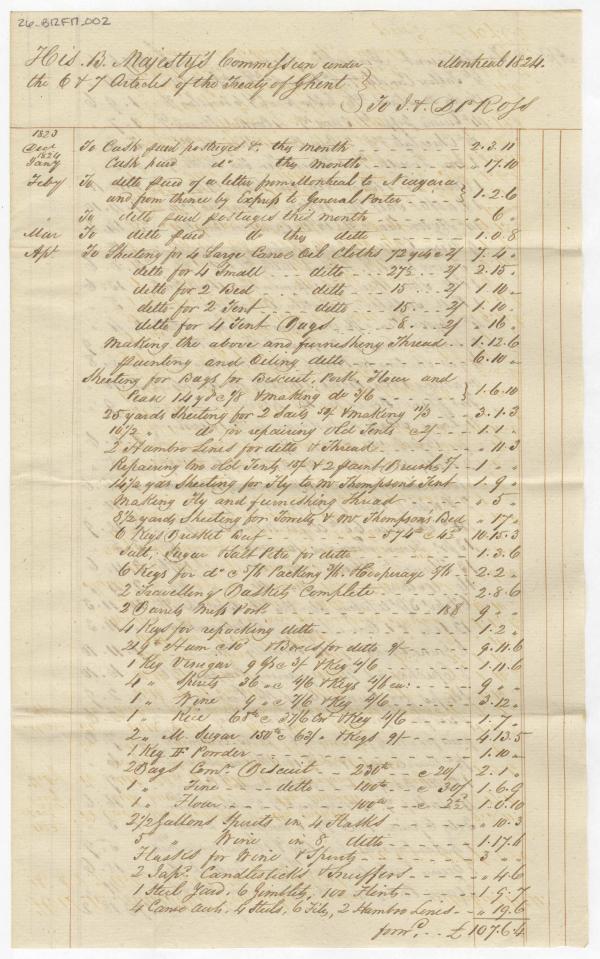 26-BRFM-002
His B. Majesty's Commission under
the 6 & 7 Articles of the Treaty of Ghent
Montreal 1824.
To J. & D Ross
1823
Decr To Cash paid postages &c this month 2.3.11
1824
Jany Cash paid do this month " 17.10
Feby To ditto paid of a letter from Montreal to Niagara
and from thence by Express to General Porter 1.2.6
" To ditto paid postages this month " 6 "
Mar To ditto paid do this ditto 1.0.8
Apl To Sheeting for 4 Large Canoe Oil Cloths 72 yds @ 2/ 7.4 "
ditto for 4 Small ditto 27½ 2/ 2.15 "
ditto for 2 Bed ditto 15 2/ 1.10 "
ditto for 2 Tent ditto 15 2/ 1.10 "
ditto for 4 Tent Bags 8 2/ " 16 "
Making the above and furnishing Thread 1.12.6
painting and Oiling ditto 6.10 "
Sheeting for Bags for Biscuit, Pork, Flour and
Pease 14 yds @ /8 & making do 3/6 1.6.10
25 yards Sheeting for 2 Sails & making 11/3 3.1.3
10 1/2 " do for repairing old Tents @ 2/ 1.1 "
2 Hambro Lines for ditto & Thread " 11.3
Repairing two old Tents & 2 paint Brushes 1 " "
14 1/2 yds Sheeting for Fly to Mr Thompson's Tent 1.9 "
Making Fly and furnishing thread " 5 "
8 1/2 yards Sheeting for Towels & Mr Thompson's Bed " 17 "
6 Kegs Brisket Beef 10.15.3
Salt, Sugar & Salt Petre for ditto 1.3.6
6 Kegs for do @ 3/6 Packing Hooperage 2.2 "
2 Travelling Baskets Complete 2.8.6
2 Barrels Mess Pork 9 " "
4 Kegs for repacking ditto 1.2 "
Ham @ 10d & Boxes for ditto 9/ 9.11.6
1 Keg Vinegar 9 Gs @ 3/ & Keg 4/6 1.11.6
4 " Spirits 36 " @ 4/6 & Kegs 4/6 ea: 9 " "
1 " Wine 9 " @ 7/6 & Keg 4/6 3.12 "
1 " Rice & Key 4/6 1.7 "
2 " M. Sugar 150 lb @ & Kegs 9/ 4.13.5
1 Keg Powder 1.10 "
2 Bags Comn. Biscuit 230 lb @ 20/ 2.1 "
1 " Fine ditto 100 lb @ 30/ 1.6.9
1 " Flour 100 lb @ 1.0.10
2 1/2 Gallons Spirits in 4 Flasks " 10.3
5 " Wine in 8 ditto 1.17.6
Flasks for Wine & Spirits 3 " "
2 Japd. Candlesticks & Snuffers " 4.6
1 Steel Yard, 6 Gimblets, 100 Flints 1.9.7
4 Canoe Awls, 4 Steels, 6 Files, 2 Hambro Lines " 19.6
forwd. £ 107.6.4